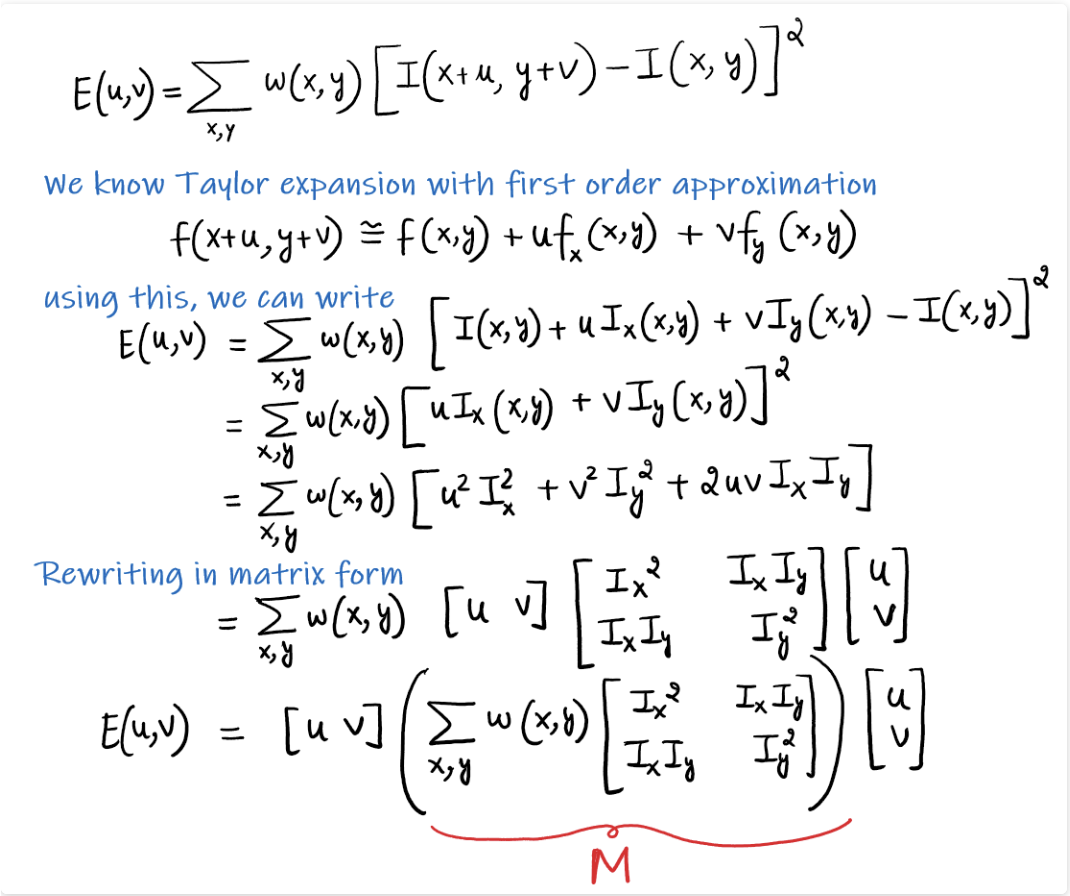 E(u,v) = ∑_{x,y} w(x,y) [I(x+u, y+v) − I(x,y)]²
We know Taylor expansion with first order approximation
f(x+u, y+v) ≅ f(x,y) + uf_x(x,y) + vf_y(x,y)
using this, we can write
E(u,v) = ∑_{x,y} w(x,y) [I(x,y) + uI_x(x,y) + vI_y(x,y) − I(x,y)]²
= ∑_{x,y} w(x,y) [uI_x(x,y) + vI_y(x,y)]²
= ∑_{x,y} w(x,y) [u² I_x² + v² I_y² + 2uv I_x I_y]
Rewriting in matrix form
= ∑_{x,y} w(x,y) [u v] [I_x² I_x I_y; I_x I_y I_y²] [u; v]
E(u,v) = [u v] (∑_{x,y} w(x,y) [I_x² I_x I_y; I_x I_y I_y²]) [u; v]
M